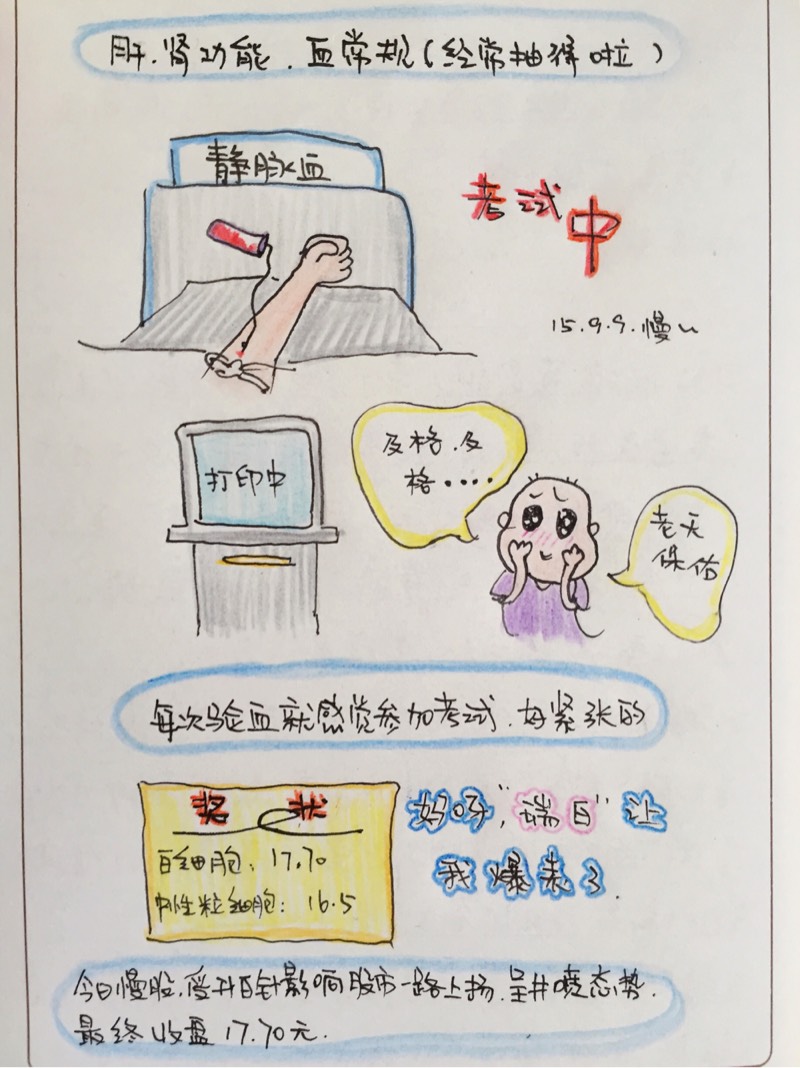 肝.肾功能.血常规(经常抽得啦)
静脉血
考试中
15.9.9.慢
打印中
及格.及
格....
老天
保佑
每次验血就感觉参加考试.好紧张的
奖状
白细胞:17.70
中性粒细胞:16.5
妈呀,"瑞白"让
我爆表了.
今日慢股,受升白针影响股市一路上扬.呈井喷态势.
最终收盘17.70元.